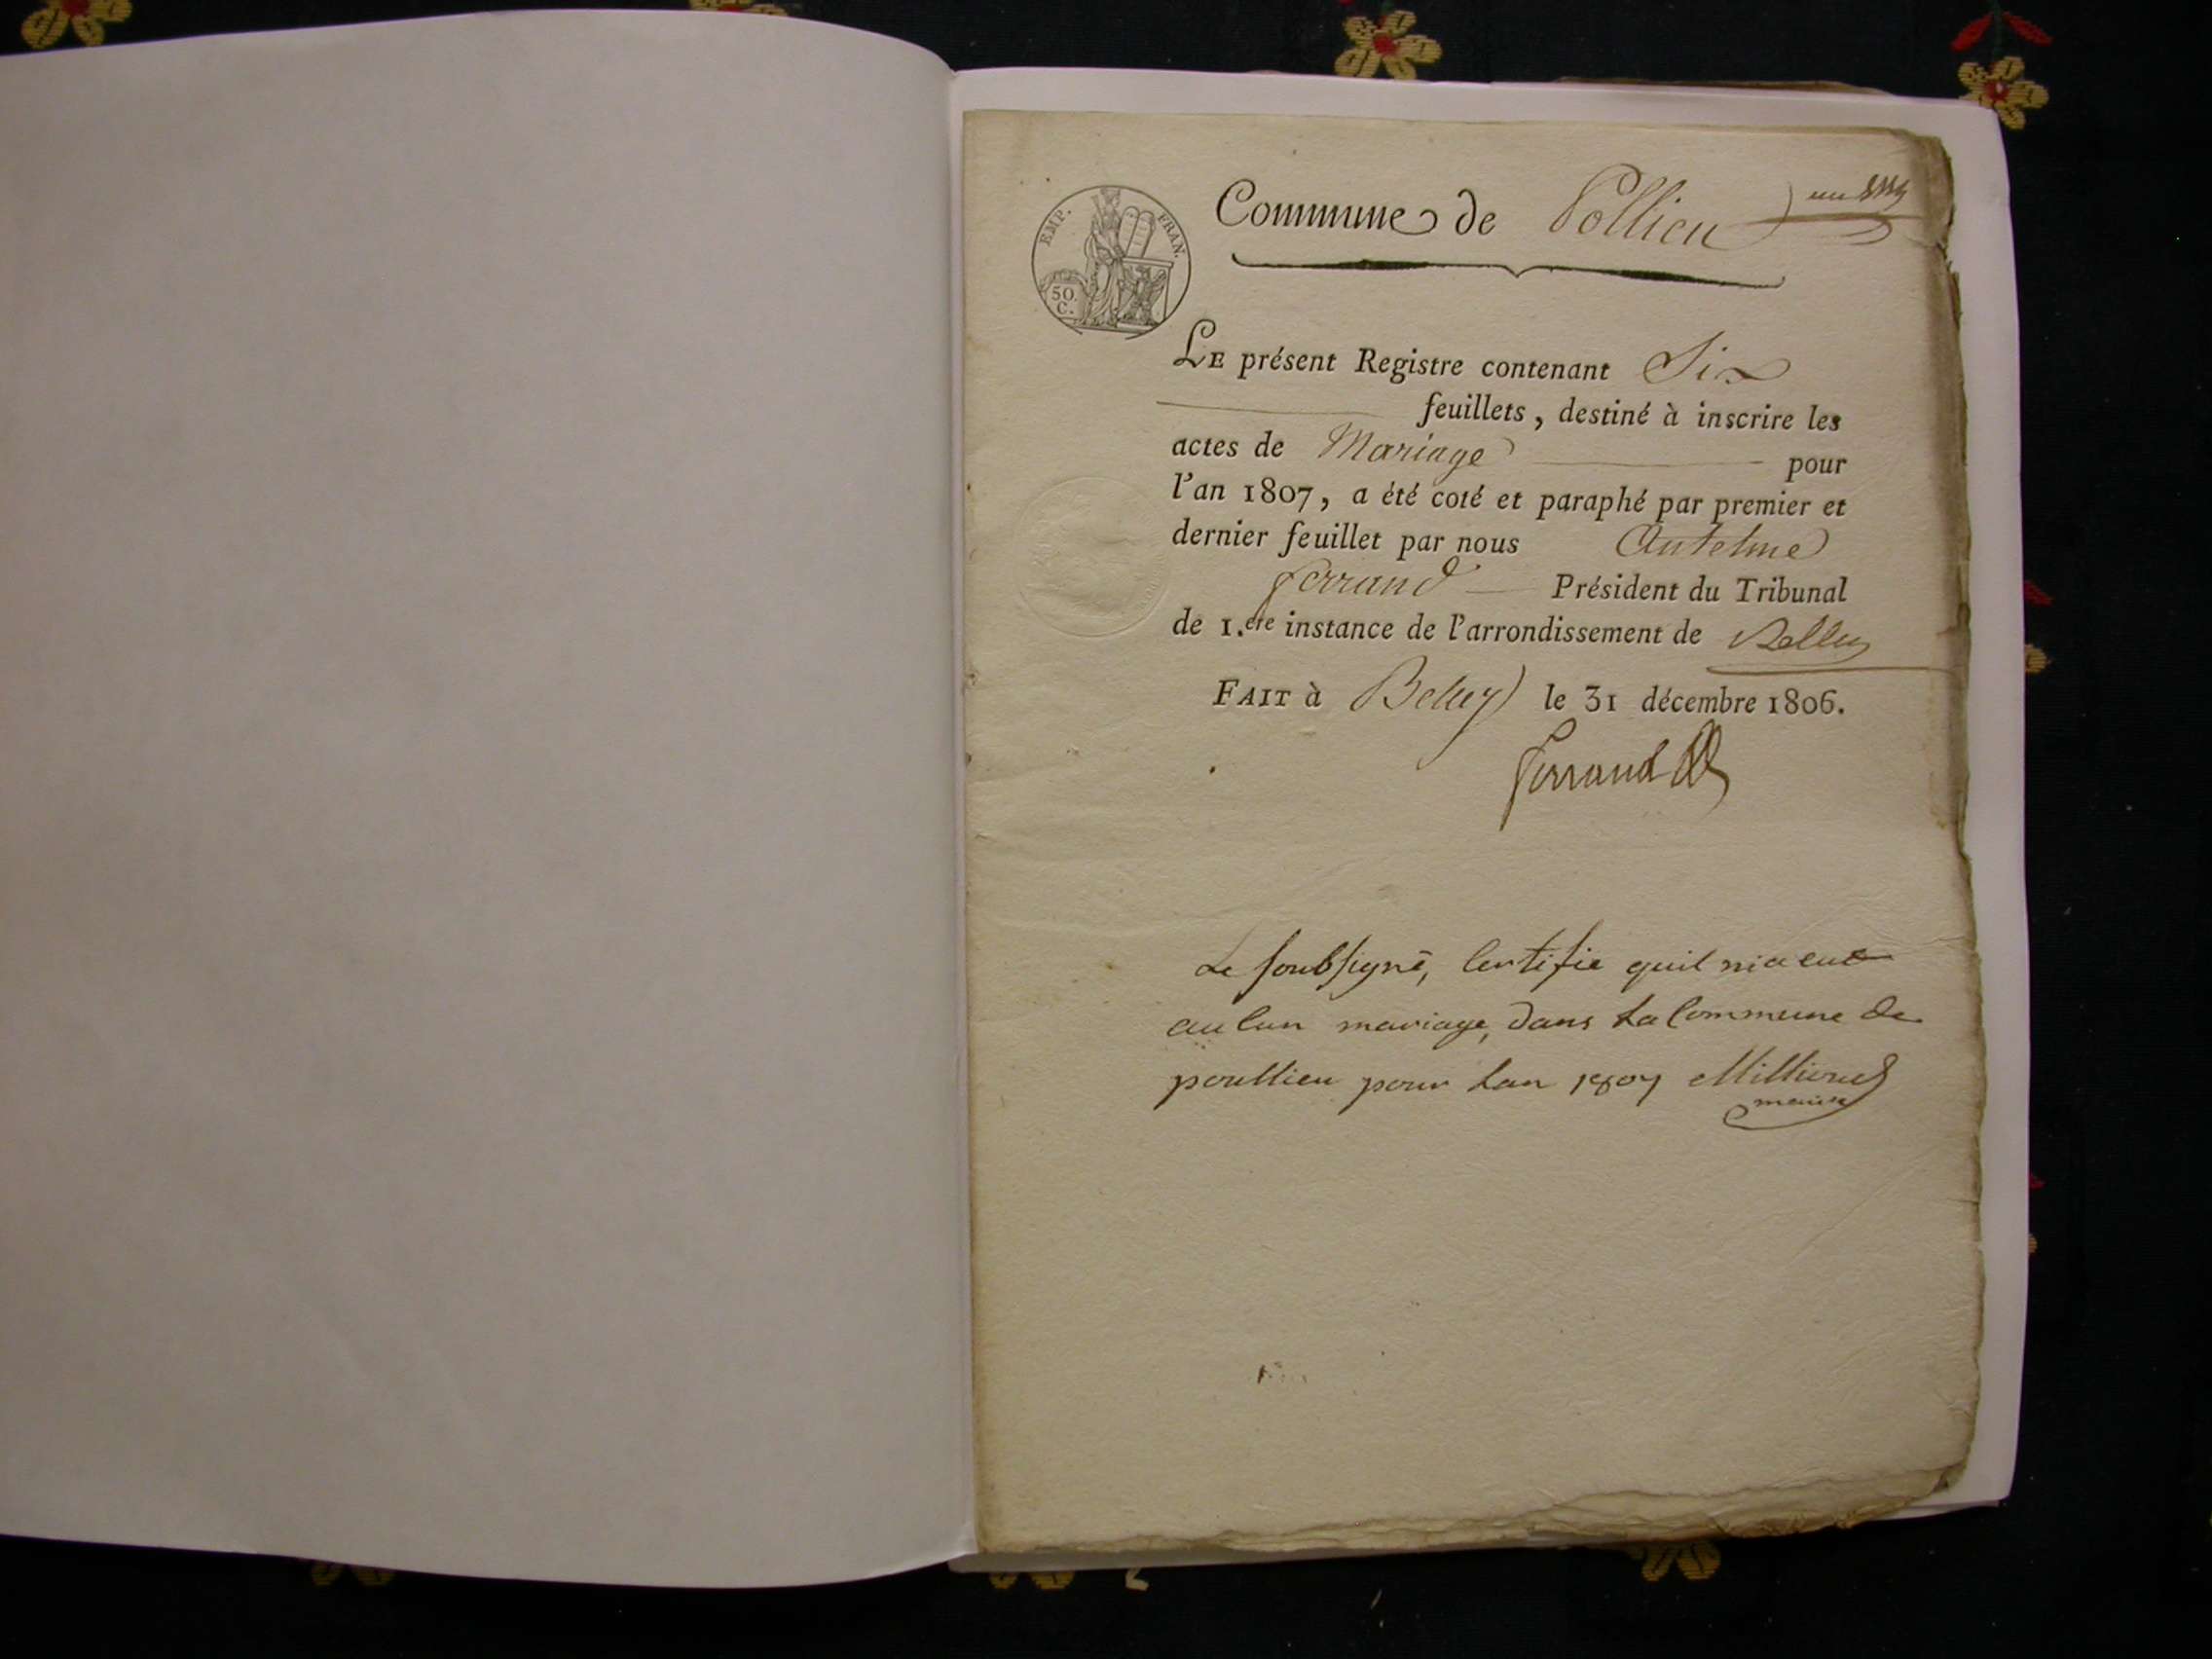 EMP. FRAN.
50.
C.
Commune de Pollieu
un
LE présent Registre contenant Six
feuillets, destiné à inscrire les
actes de Mariage pour
l'an 1807, a été coté et paraphé par premier et
dernier feuillet par nous Antelme
ferrand Président du Tribunal
de 1.ere instance de l'arrondissement de Belley
FAIT à Belley le 31 décembre 1806.
ferrand
Le soubsigné, Certifie quil nia eut
aucun mariage, dans La Commune de
poullieu pour Lan 1807 Millioud
maire